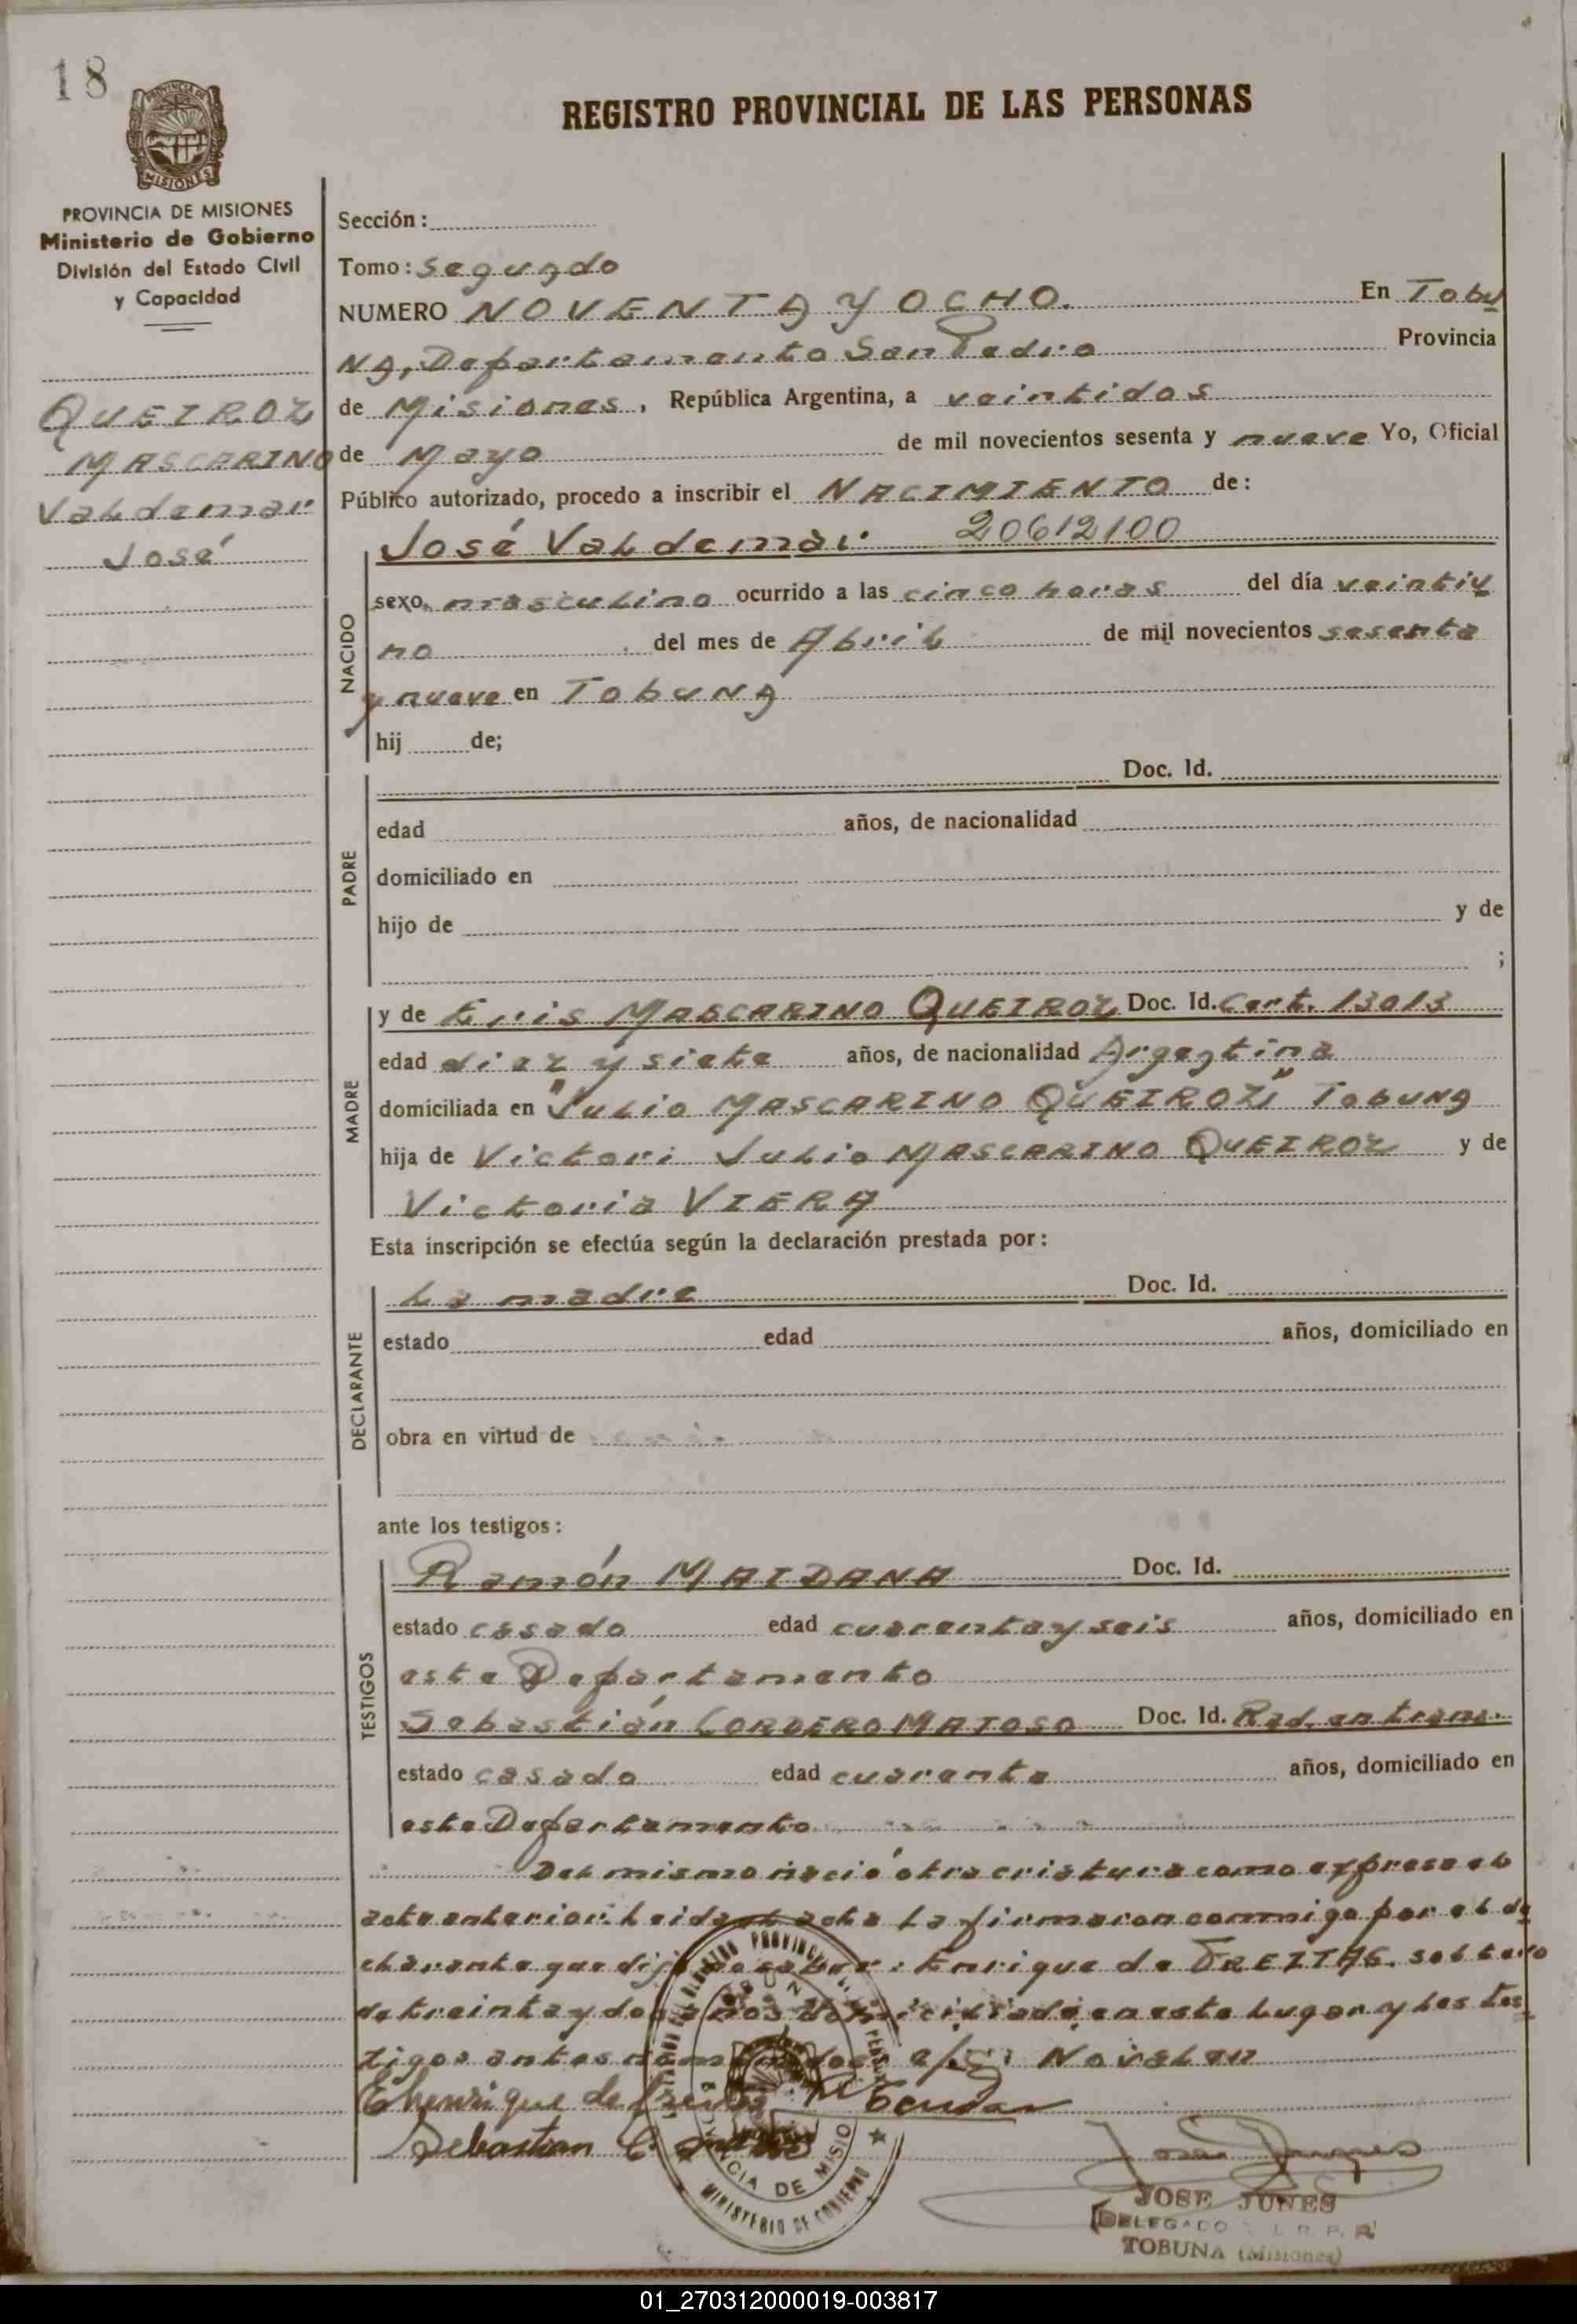 18
REGISTRO PROVINCIAL DE LAS PERSONAS
PROVINCIA DE MISIONES
MISIONES
PROVINCIA DE MISIONES
Ministerio de Gobierno
División del Estado Civil
y Capacidad
QUEIROZ
MASCARINO
Valdemar
José
Sección:
Tomo: Segundo
NUMERO NOVENTA Y OCHO. En Tobu
NA, Departamento San Pedro Provincia
de Misiones, República Argentina, a veintidos
de Mayo de mil novecientos sesenta y nueve Yo, Oficial
Público autorizado, procedo a inscribir el NACIMIENTO de:
NACIDO
José Valdemar 20612100
sexo masculino ocurrido a las cinco horas del día veintiu
no del mes de Abril de mil novecientos sesenta
y nueve en Tobuna
hij de;
PADRE
Doc. Id.
edad años, de nacionalidad
domiciliado en
hijo de y de
;
MADRE
y de Eris MASCARINO QUEIROZ Doc. Id. Cert. 13013
edad diez y siete años, de nacionalidad Argentina
domiciliada en "Julio MASCARINO QUEIROZ" Tobuna
hija de Victori Julio MASCARINO QUEIROZ y de
Victoria VIERA
Esta inscripción se efectúa según la declaración prestada por:
DECLARANTE
La madre Doc. Id.
estado edad años, domiciliado en
obra en virtud de
ante los testigos:
TESTIGOS
Ramón MAIDANA Doc. Id.
estado casado edad cuarenta y seis años, domiciliado en
este Departamento
Sebastián CORDERO MATOSO Doc. Id. Rad. en tram.
estado casado edad cuarenta años, domiciliado en
este Departamento
Del mismo nació otra criatura como expresa el
acta anterior. Leida el acta la firmaron conmigo por el de
charante que dijo no saber: Enrique de FREITAS. soltero
de treinta y dos años domiciliado en este lugar y los tes
tigos antes
Ehenrique de
Sebastian C.
PROVINCIA DE MISIONES
MINISTERIO DE GOBIERNO
JOSE JUNES
DELEGADO R. P. P.
TOBUNA (Misiones)
01_270312000019-003817